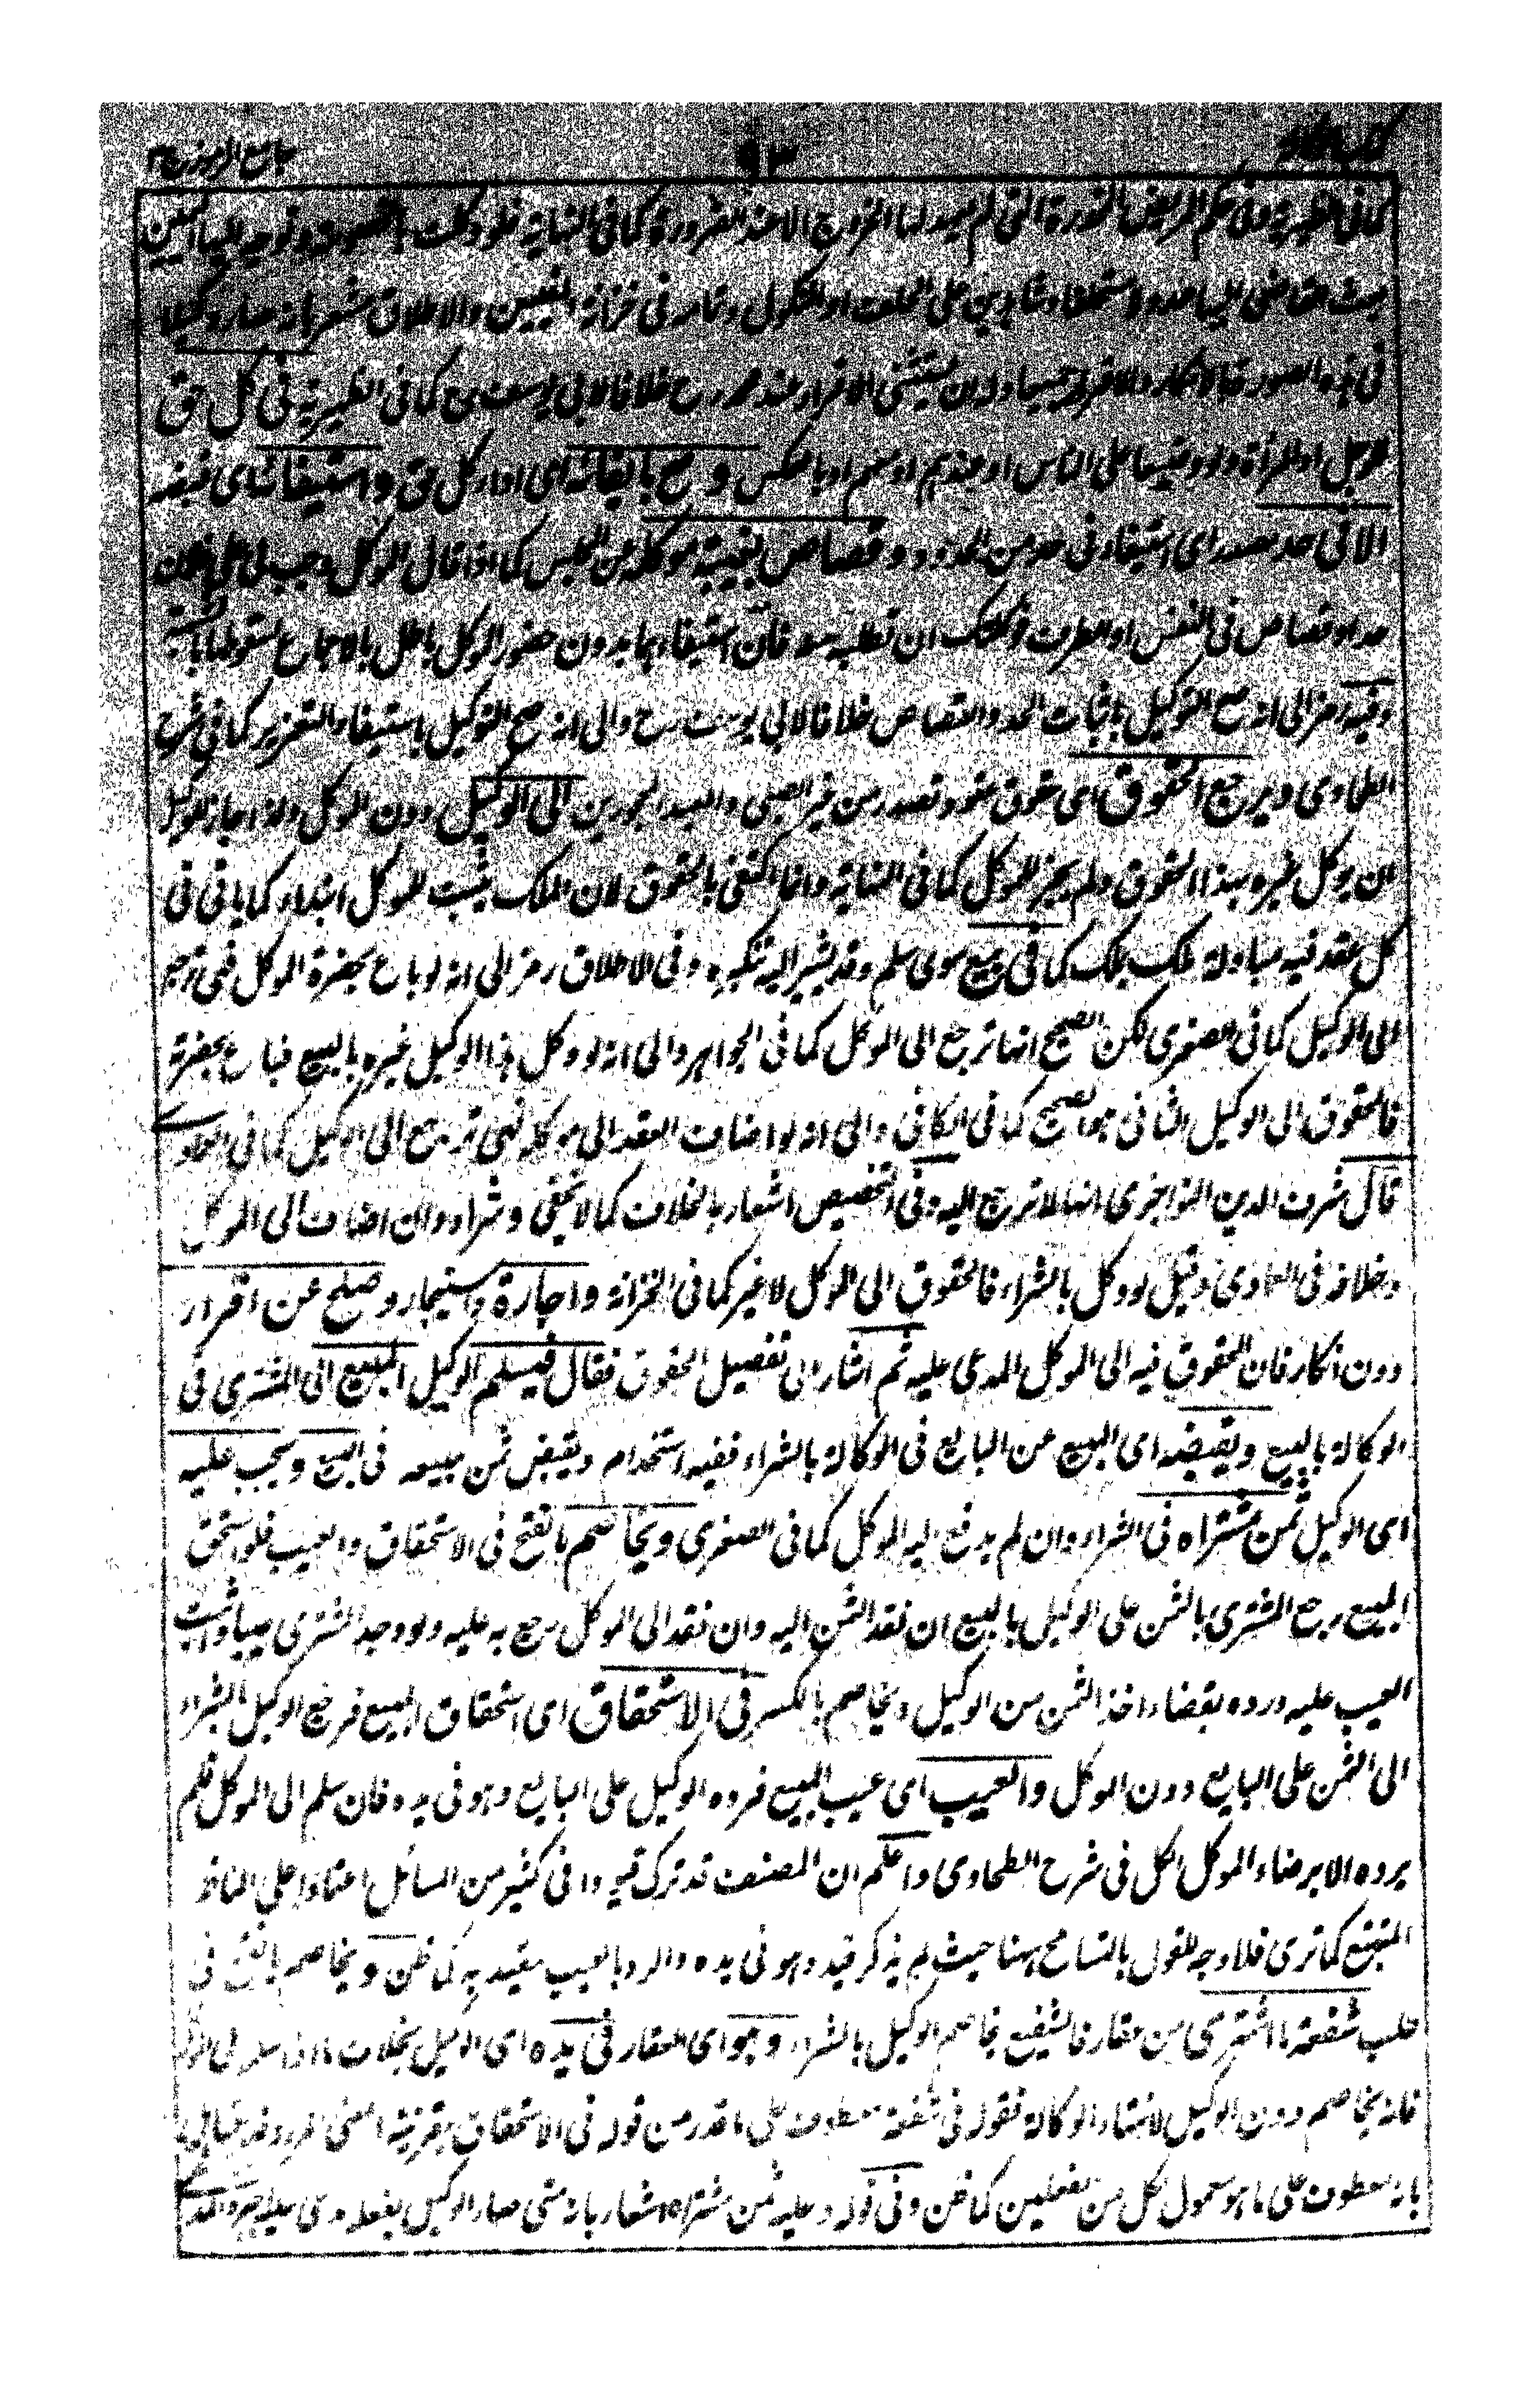 كتاب الوكالة ٩٣ جامع الرموز ج
كما فى الظهيرية وفى حكم المريض المخدرة التى لم يعهد لها الخروج الا عند الضرورة كما فى النهاية فلو وكلت بالخصومة وتوجه اليها اليمين
بعث القاضى اليها عدولا مستحلفا وشاهدين على الحلف او النكول وتمامه فى خزانة المفتيين والاطلاق مشعر بانه صار وكيلا
فى هذه الصور فى الانكار والاقرار جميعا وله ان يستثنى الاقرار عند محمد رح خلافا لابى يوسف رح كما فى الظهيرية فى كل حق
لرجل او امرأة ولو وضيعا على الناس او عندهم او معهم او بالعكس وصح بايفائه اى اداء كل حق واستيفائه اى قبضه
الا فى حد مصدر اى استيفاء فى حد من الحدود وقصاص بغيبة موكله عن المجلس كما اذا قال الموكل وجب لى على فلان
حد او قصاص فى النفس او الطرف فوكلتك ان تطلبه منه فان استيفاءهما بدون حضور الموكل باطل بالاجماع لسقوطها بالشبهة
وفيه رمز الى انه صح التوكيل باثبات الحد والقصاص خلافا لابى يوسف رح والى انه صح التوكيل باستيفاء التعزير كما فى شرح
الطحاوى ويرجع الحقوق اى حقوق عقود تصدر من غير الصبى والعبد المحجورين الى الوكيل دون الموكل ولذا جاز للوكيل
ان يوكل غيره بهذا الحقوق ولم يجز للموكل كما فى النهاية وانما اكتفى بالحقوق لان الملك يثبت للموكل ابتداء كما ياتى فى
كل عقد فيه مبادلة ملك بملك كما فى بيع سوى سلم وقد يشير اليه تنكيره وفى الاطلاق رمز الى انه لو باع بحضرة الموكل فهى ترجع
الى الوكيل كما فى الصغرى لكن الصحيح انها ترجع الى الموكل كما فى الجواهر والى انه لو وكل هذا الوكيل غيره بالبيع فباع بحضرته
فالحقوق الى الوكيل الثانى هو الصحيح كما فى الكافى والى انه لو اضاف العقد الى موكله فهى ترجع الى الوكيل كما فى العمادى
قال شرف الدين الخواجزى انها لا ترجع اليه وفى التخصيص اشعار بالخلاف كما لا يخفى وشراء وان اضاف الى الموكل
وخلافه فى العمادى وقيل لو وكل بالشراء فالحقوق الى الموكل لا غير كما فى الخزانة واجارة واستيجار وصلح عن اقرار
دون انكار فان الحقوق فيه الى الموكل المدعى عليه ثم اشار الى تفصيل الحقوق فقال فيسلم الوكيل المبيع الى المشترى فى
الوكالة بالبيع ويقبضه اى المبيع عن البايع فى الوكالة بالشراء ففيه استخدام ويقبض ثمن مبيعه فى البيع ويجب عليه
اى الوكيل ثمن مشتراه فى الشراء وان لم يدفع اليه الموكل كما فى الصغرى ويخاصم بالفتح فى الاستحقاق والعيب فلو استحق
المبيع رجع المشترى بالثمن على الوكيل بالبيع ان نقد الثمن اليه وان نقد الى الموكل رجع به عليه ولو وجد المشترى عيبا واثبت
العيب عليه ورده بقضاء اخذ الثمن من الوكيل ويخاصم بالكسر فى الاستحقاق اى استحقاق المبيع فرجع الوكيل بالشراء
الى الثمن على البايع دون الموكل والعيب اى عيب المبيع فرده الوكيل على البايع وهو فى يده فان سلم الى الموكل فلم
يرده الا برضاء الموكل الكل فى شرح الطحاوى واعلم ان المصنف قد ترك قيودا فى كثير من المسائل اعتمادا على الماتن
المتتبع كما ترى فلا وجه للقول بالتسامح ههنا حيث لم يذكر قيد وهو فى يده والرد بالعيب مقيد به كما ظن ويخاصم بالفتح فى
طلب شفعة ما اشترى من عقار فالشفيع يخاصم الوكيل بالشراء وهو اى العقار فى يده اى الوكيل بخلاف ما اذا سلم الى الموكل
فانه يخاصم دون الوكيل لانتهاء الوكالة فقوله فى شفعة معطوف على ما قدر من قوله فى الاستحقاق بقرينة المعنى
بانه معطوف على ما هو معمول لكل من الفعلين كما ظن وفى قوله وعليه ثمن مشتراه اشعار بانه متى صار الوكيل بفعله